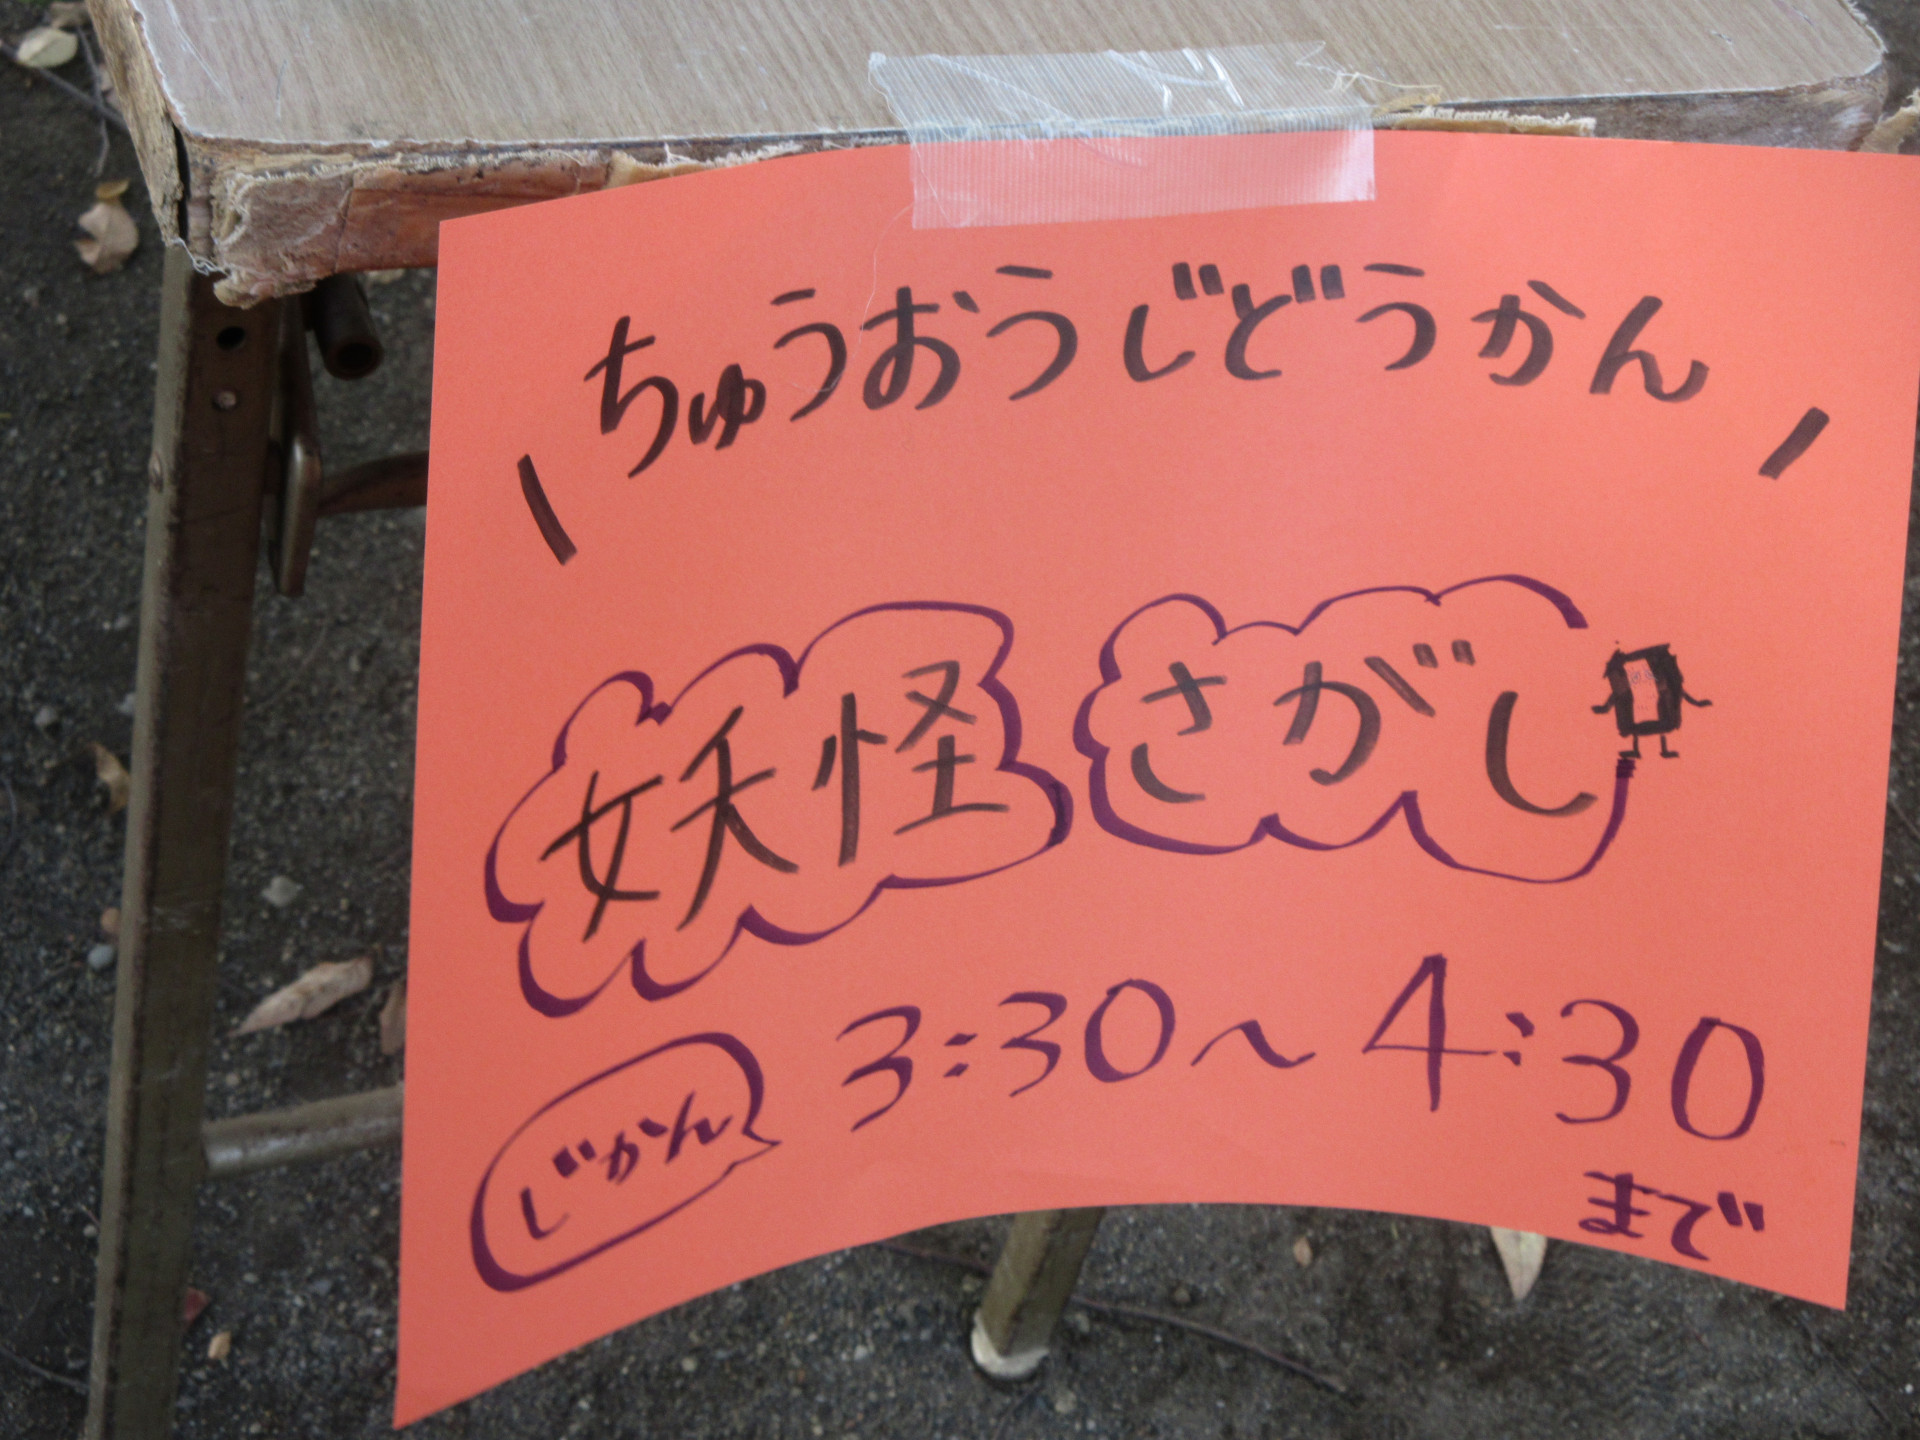 ちゅうおうじどうかん
妖怪さがし
じかん 3:30～4:30
まで